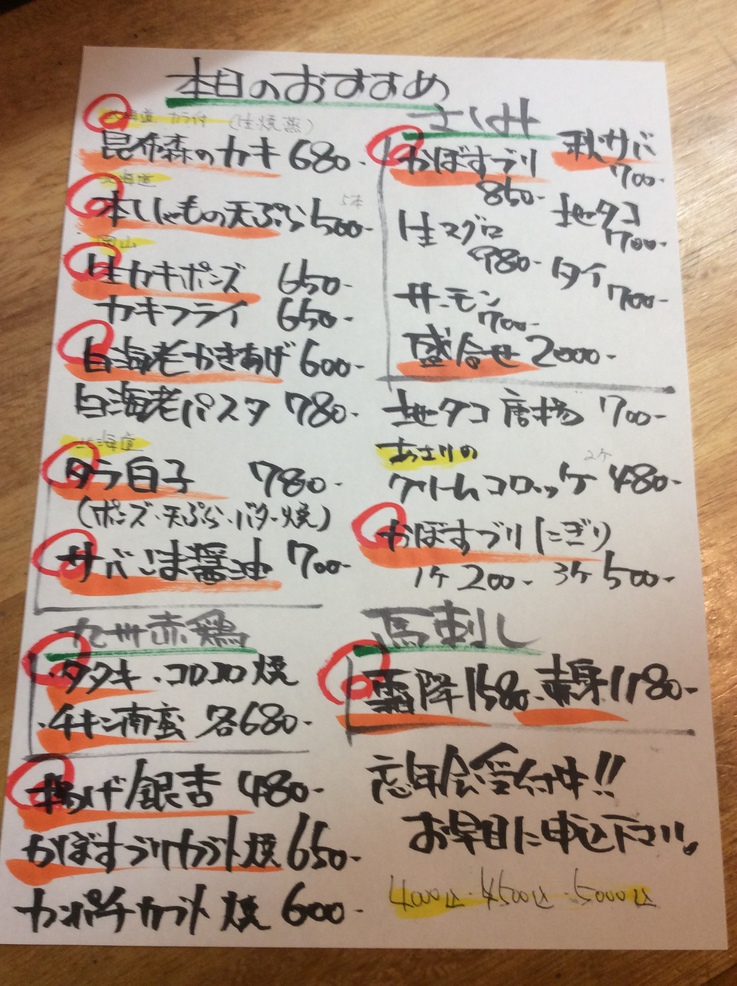 本日のおすすめ
北海道 カラ付 (生・焼・蒸)
昆布森のカキ 680-
北海道
本ししゃもの天ぷら 5本 500-
岡山
生カキポンズ 650-
カキフライ 650-
白海老かきあげ 600-
白海老パスタ 780-
北海道
タラ白子 780-
(ポンズ・天ぷら・バター焼)
サバごま醤油 700-
九州赤鶏
・タタキ ・コロコロ焼
・チキン南蛮 各680-
揚げ銀杏 480-
かぼすブリカブト焼 650-
カンパチカブト焼 600-
さしみ
かぼすブリ 850-
秋サバ 700-
生マグロ 980-
地タコ 700-
サーモン 700-
タイ 700-
盛合せ 2000-
地タコ唐揚 700-
あさりの
クリームコロッケ 2ケ 480-
かぼすブリにぎり
1ケ 200- 3ケ 500-
馬刺し
霜降 1580- 赤身 1180-
忘年会受付中!!
お早目に申込下さい。
4000込・4500込・5000込